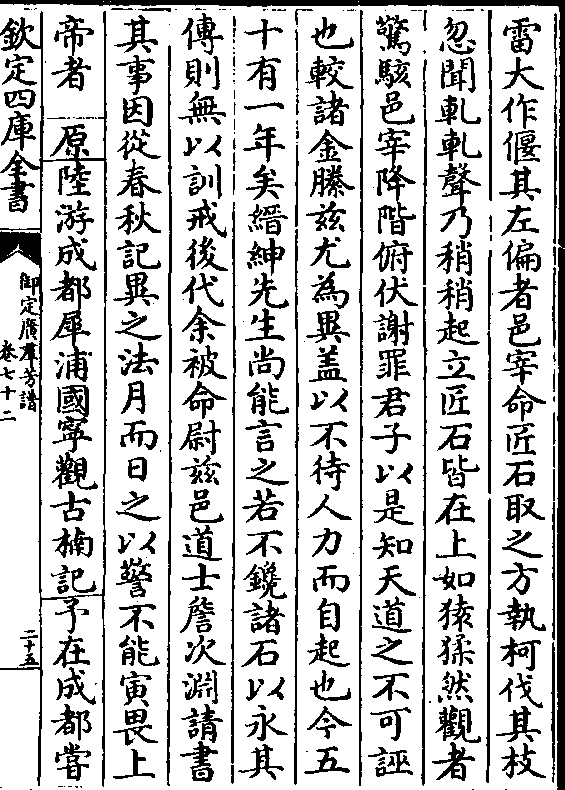 雷大作偃其左偏者邑宰命匠石取之方執柯伐其枝
忽聞軋軋聲乃稍稍起立匠石皆在上如猿猱然觀者
驚駭邑宰降階俯伏謝罪君子以是知天道之不可誣
也較諸金縢兹尤為異盖以不待人力而自起也今五
十有一年矣縉紳先生尚能言之若不鑱諸石以永其
傳則無以訓戒後代余被命尉兹邑道士詹次淵請書
其事因從春秋記異之法月而日之以警不能寅畏上
帝者 原陸游成都犀浦國寧觀古楠記予在成都嘗
欽定四庫全書
御定廣羣芳譜
卷七十二
二十五